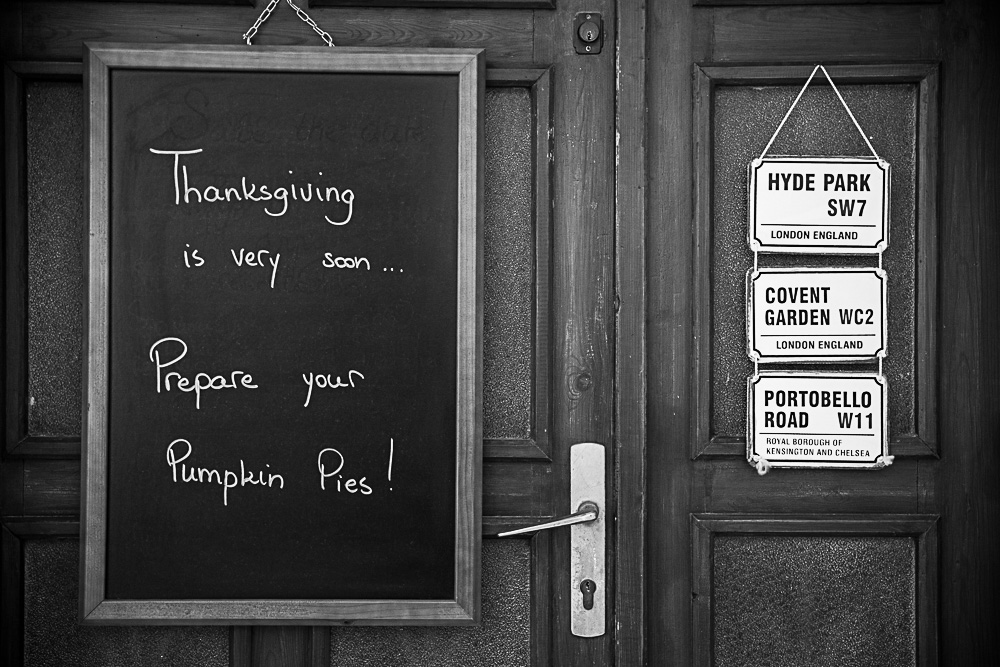 Save the date
Thanksgiving
is very soon...
Prepare your
Pumpkin Pies!
HYDE PARK
SW7
LONDON ENGLAND
COVENT
GARDEN WC2
LONDON ENGLAND
PORTOBELLO
ROAD W11
ROYAL BOROUGH OF
KENSINGTON AND CHELSEA